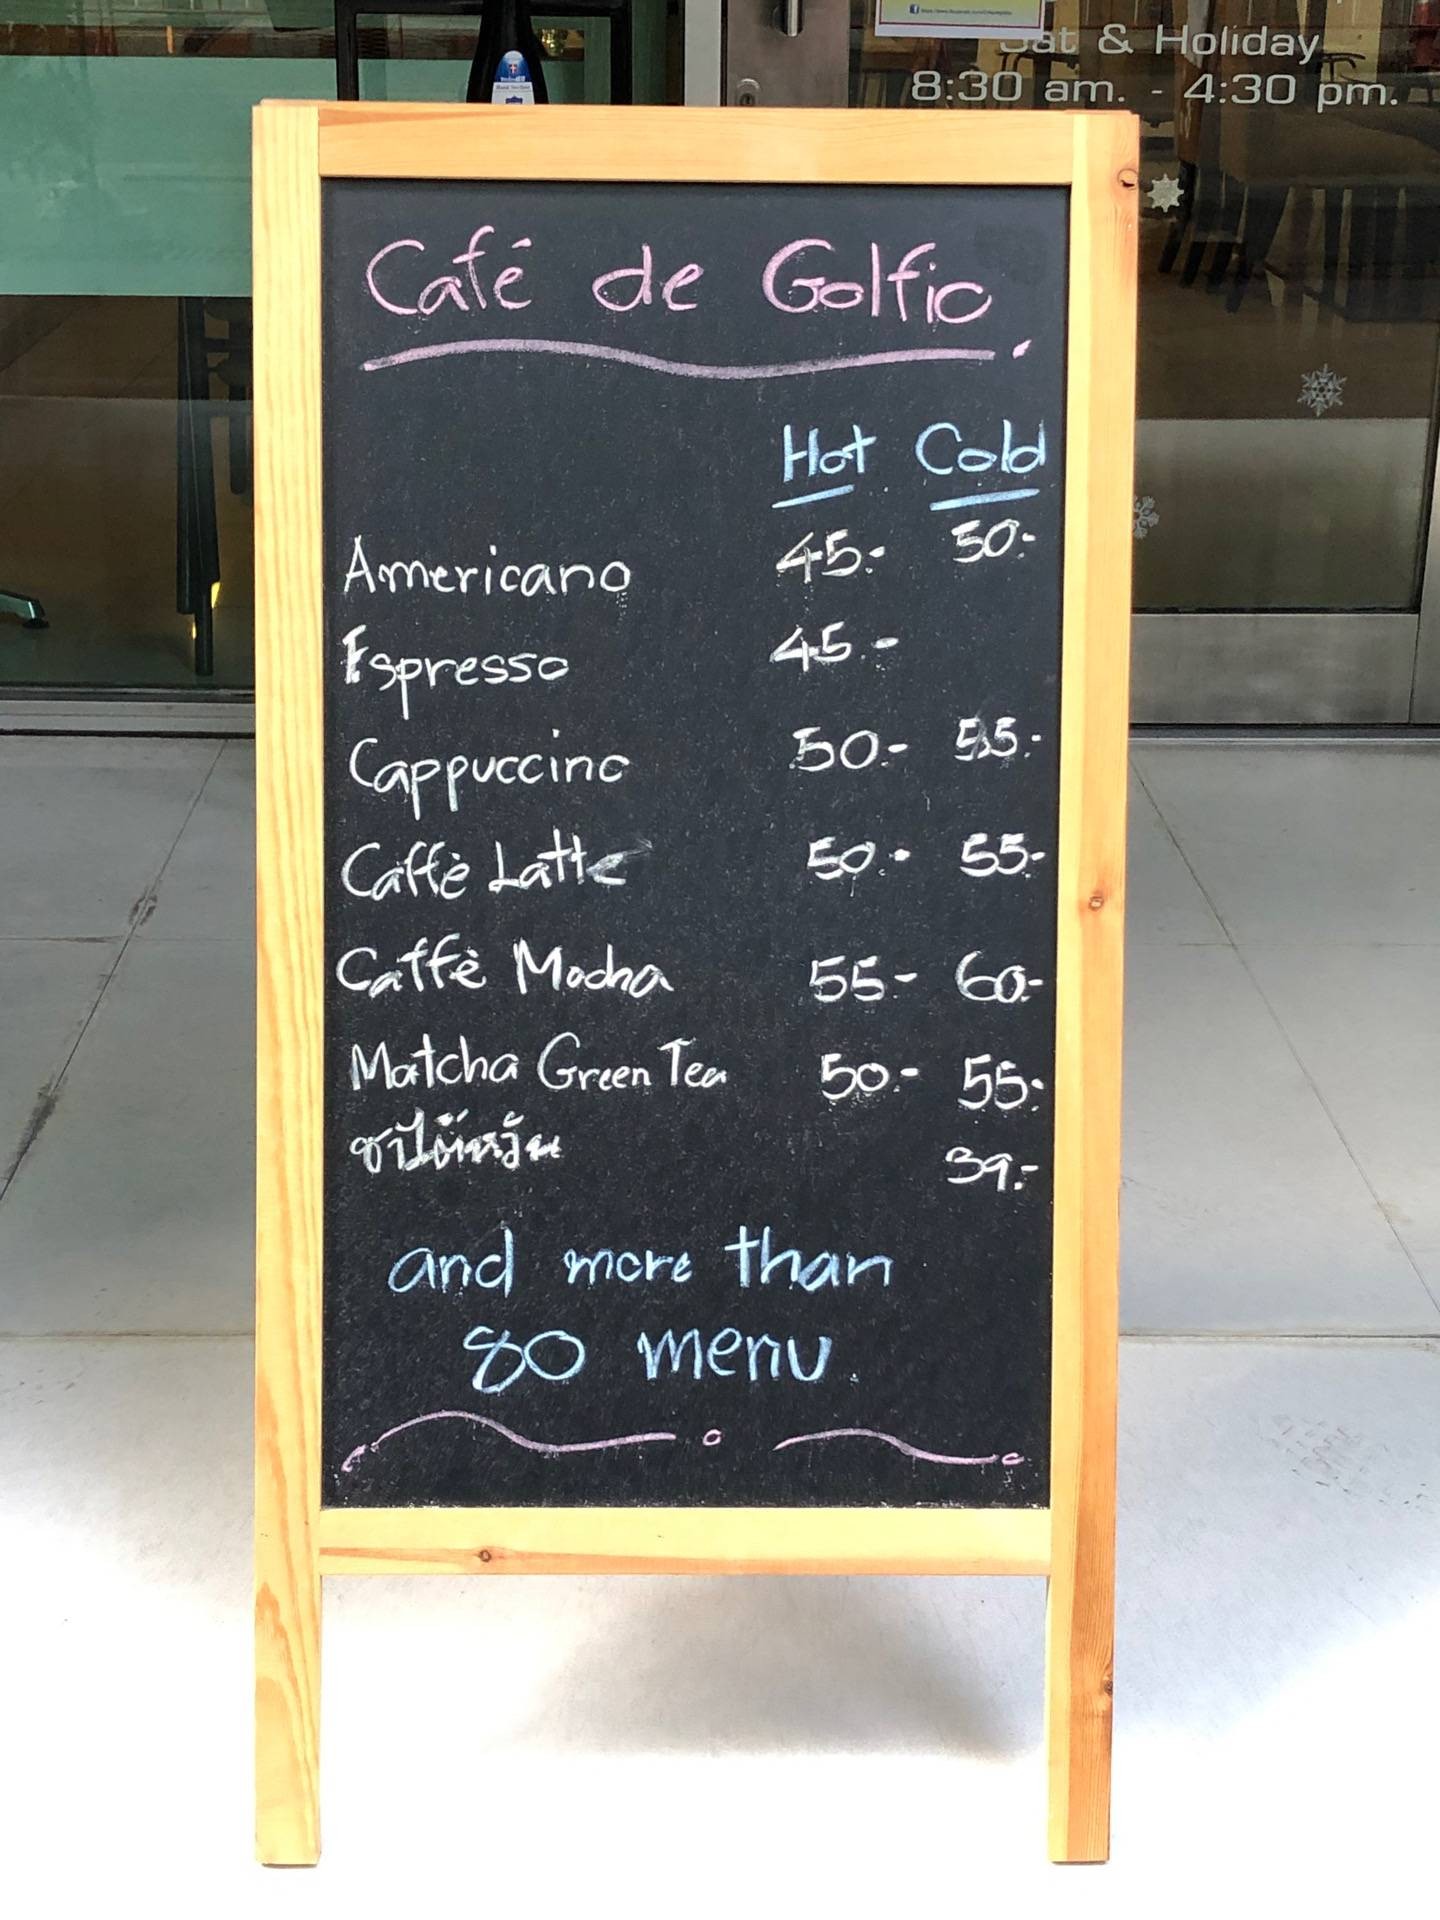 Sat & Holiday
8:30 am. - 4:30 pm.
Café de Golfio
Hot Cold
Americano 45.- 50.-
Espresso 45.-
Cappuccino 50.- 55.-
Caffè Latte 50.- 55.-
Caffè Mocha 55.- 60.-
Matcha Green Tea 50.- 55.-
ชาไต้หวัน 39.-
and more than
80 menu.